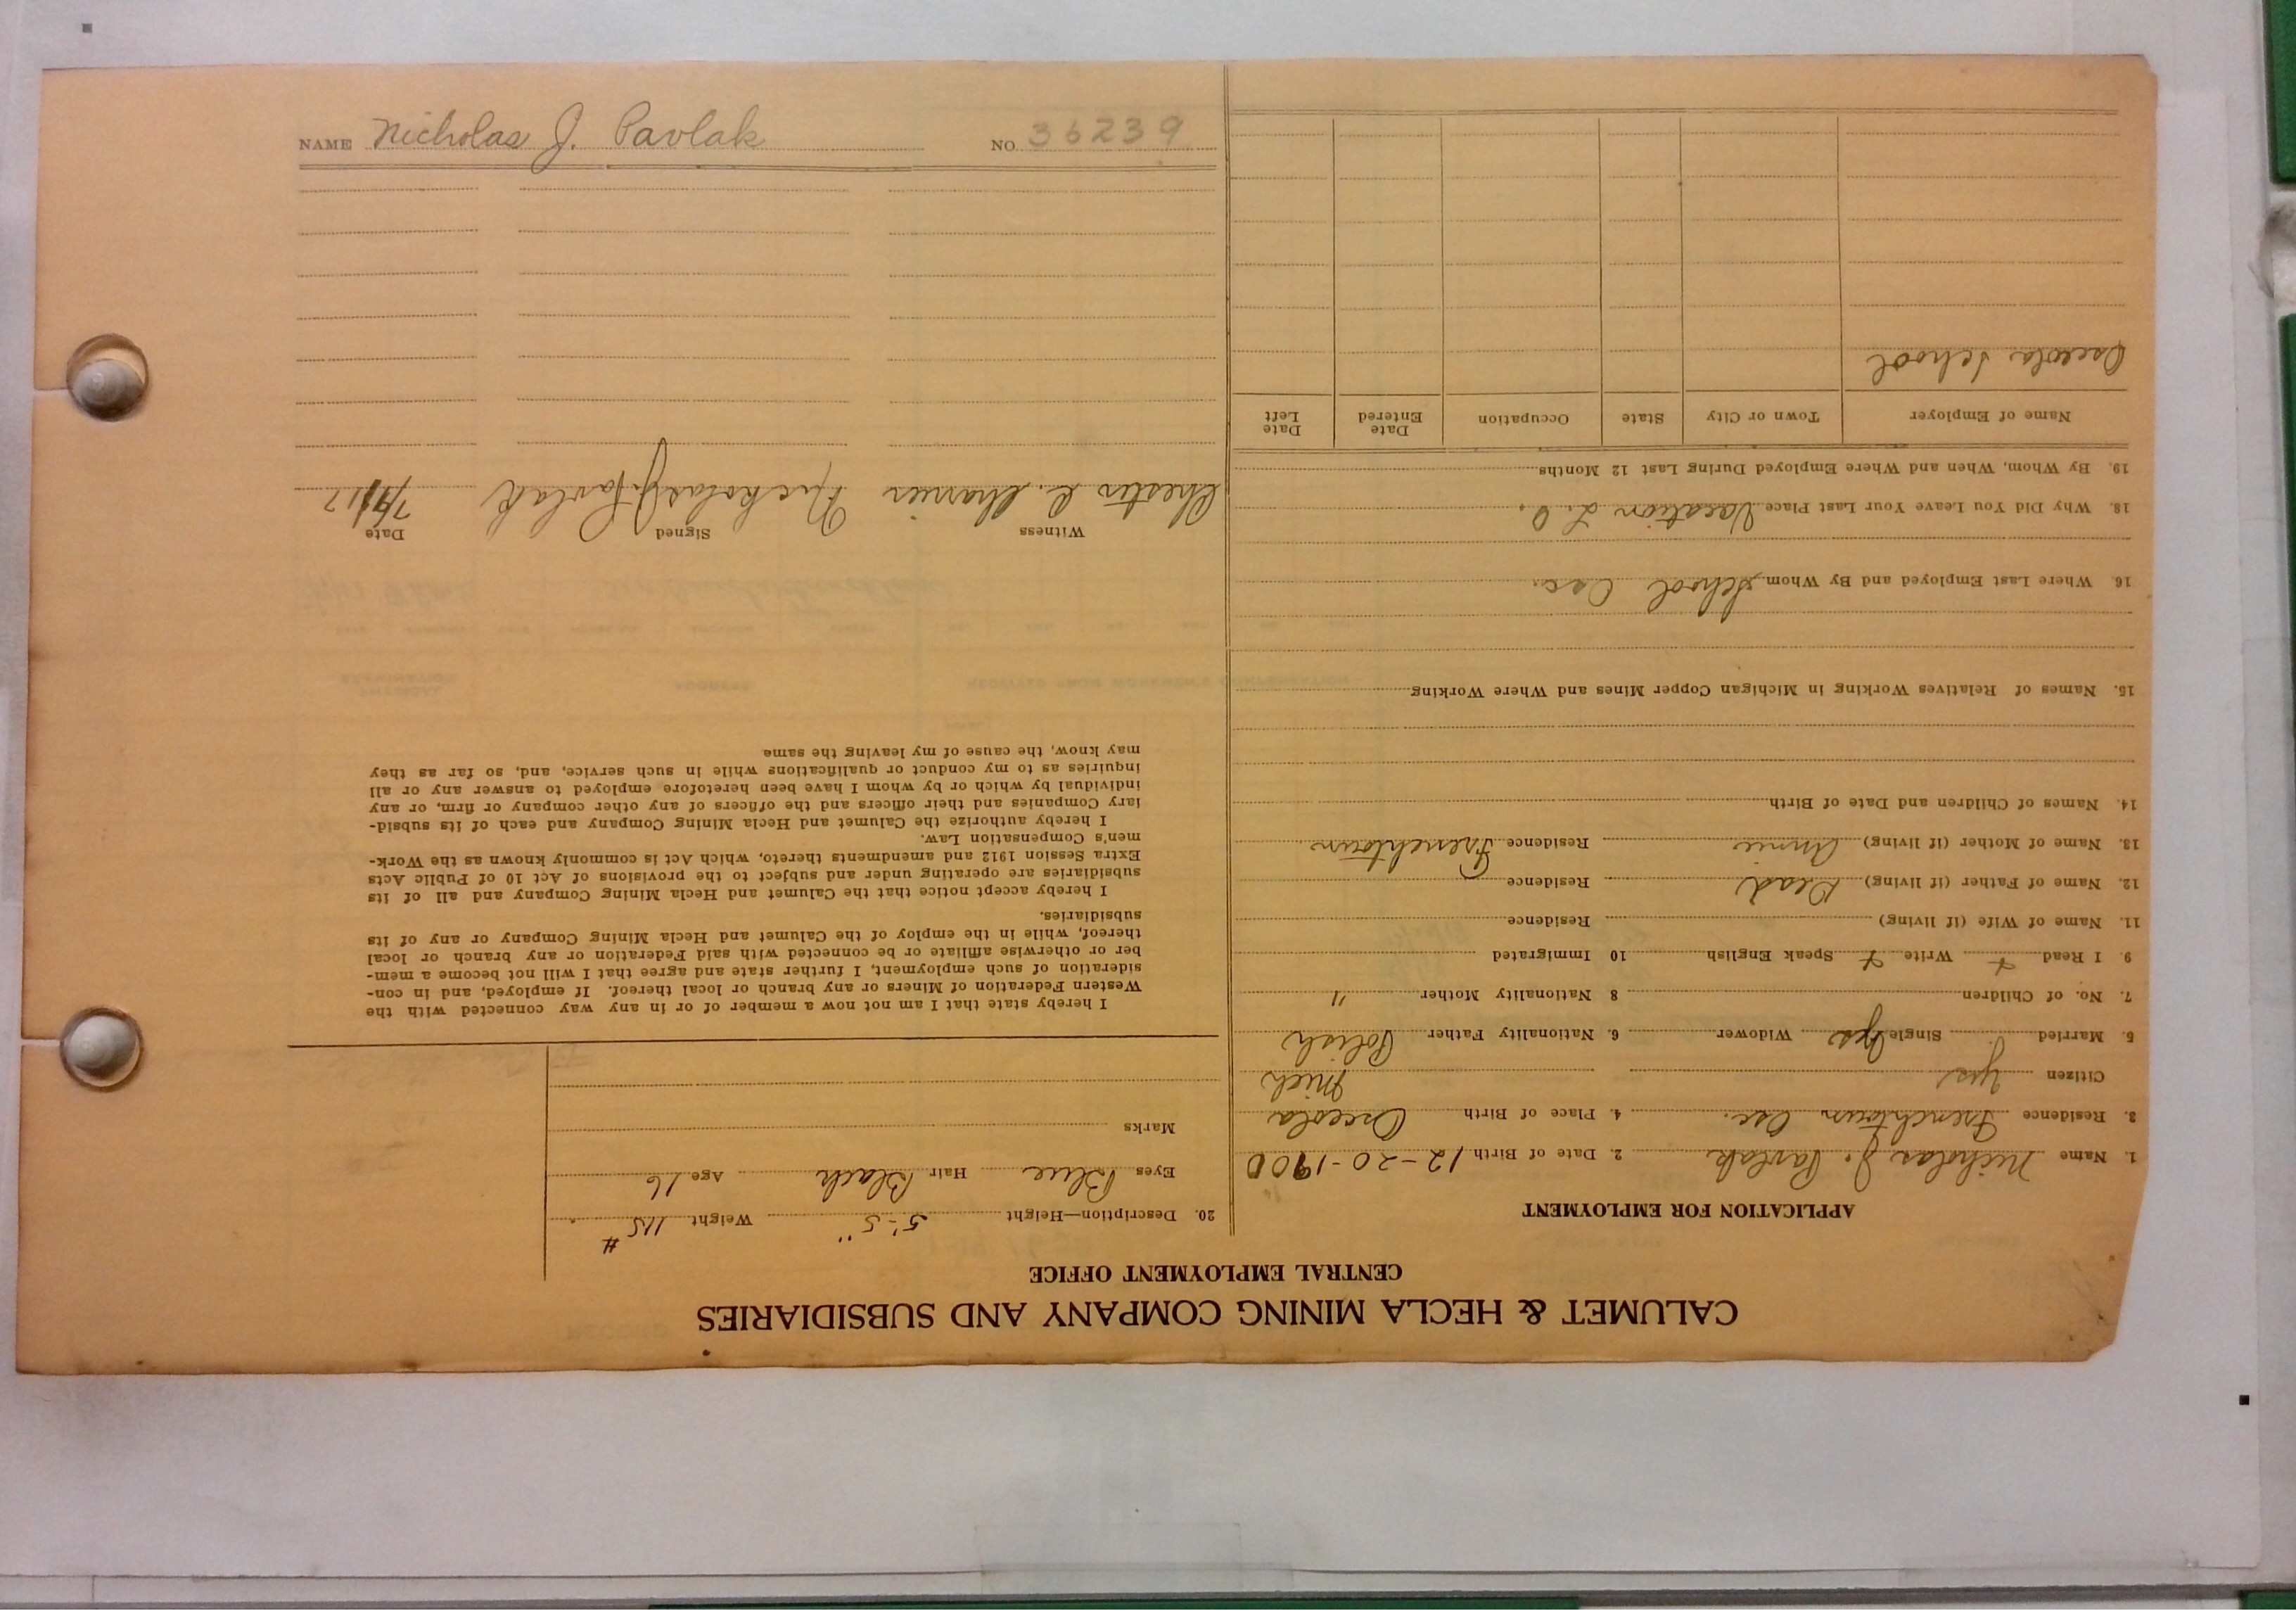 NAME Nicholas J. Pavlak NO. 36239
CALUMET & HECLA MINING COMPANY AND SUBSIDIARIES
CENTRAL EMPLOYMENT OFFICE
APPLICATION FOR EMPLOYMENT
1. Name Nicholas J. Pavlak 2. Date of Birth 12-20-1900
3. Residence Frenchtown Osc. 4. Place of Birth Osceola
Citizen Yes Mich
5. Married Single Yes Widower 6. Nationality Father Polish
7. No. of Children 8 Nationality Mother "
9. I Read Write Speak English 10 Immigrated
11. Name of Wife (if living) Residence
12. Name of Father (if living) Dead Residence
13. Name of Mother (if living) Annie Residence Frenchtown
14. Names of Children and Date of Birth
15. Names of Relatives Working in Michigan Copper Mines and Where Working
16. Where Last Employed and By Whom School Osc.
18. Why Did You Leave Your Last Place Vacation
19. By Whom, When and Where Employed During Last 12 Months
Name of Employer Town or City State Occupation Date Entered Date Left
Osceola School
20. Description—Height 5'-5" Weight 115 #
Eyes Blue Hair Black Age 16
Marks
I hereby state that I am not now a member of or in any way connected with the
Western Federation of Miners or any branch or local thereof. If employed, and in con-
sideration of such employment, I further state and agree that I will not become a mem-
ber or otherwise affiliate or be connected with said Federation or any branch or local
thereof, while in the employ of the Calumet and Hecla Mining Company or any of its
subsidiaries.
I hereby accept notice that the Calumet and Hecla Mining Company and all of its
subsidiaries are operating under and subject to the provisions of Act 10 of Public Acts
Extra Session 1912 and amendments thereto, which Act is commonly known as the Work-
men's Compensation Law.
I hereby authorize the Calumet and Hecla Mining Company and each of its subsid-
iary Companies and their officers and the officers of any other company or firm, or any
individual by which or by whom I have been heretofore employed to answer any or all
inquiries as to my conduct or qualifications while in such service, and, so far as they
may know, the cause of my leaving the same
Witness Signed Date
Chester C. Nickolas J. Pavlak